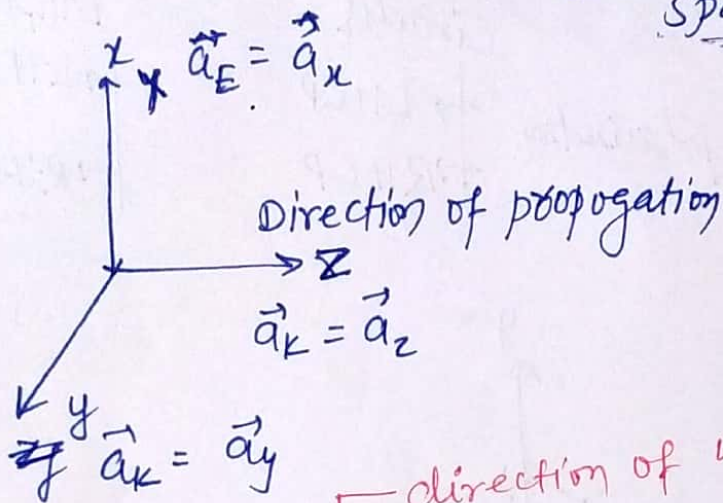 Spa
x y $\vec{a}_E = \hat{a}_x$
Direction of propogation
z
$\vec{a}_k = \vec{a}_z$
y
$\vec{a}_k = \vec{a}_y$
direction of